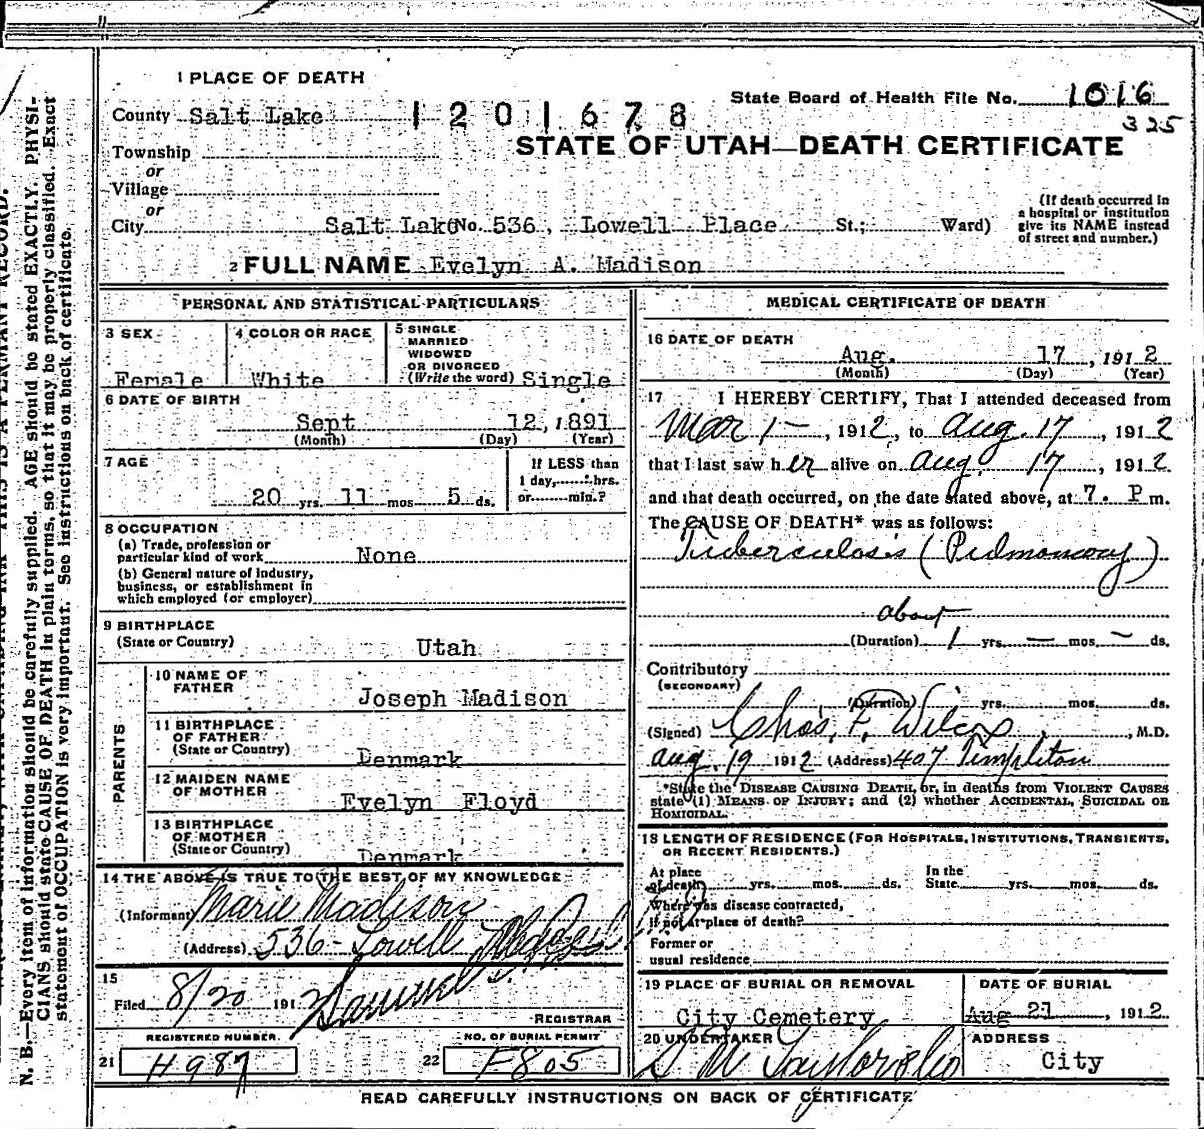 1 PLACE OF DEATH
County Salt Lake
1201678
State Board of Health File No. 1016
325
Township
or
Village
or
City Salt Lake No. 536, Lowell Place St.; Ward)
STATE OF UTAH—DEATH CERTIFICATE
(If death occurred in
a hospital or institution
give its NAME instead
of street and number.)
2 FULL NAME Evelyn A. Madison
PERSONAL AND STATISTICAL PARTICULARS
3 SEX
Female
4 COLOR OR RACE
White
5 SINGLE
MARRIED
WIDOWED
OR DIVORCED
(Write the word) Single
6 DATE OF BIRTH
Sept 12, 1891
(Month) (Day) (Year)
7 AGE
20 yrs. 11 mos 5 ds.
If LESS than
1 day, hrs.
or min.?
8 OCCUPATION
(a) Trade, profession or
particular kind of work None
(b) General nature of Industry,
business, or establishment in
which employed (or employer)
9 BIRTHPLACE
(State or Country) Utah
PARENTS
10 NAME OF
FATHER Joseph Madison
11 BIRTHPLACE
OF FATHER
(State or Country) Denmark
12 MAIDEN NAME
OF MOTHER Evelyn Floyd
13 BIRTHPLACE
OF MOTHER
(State or Country) Denmark
14 THE ABOVE IS TRUE TO THE BEST OF MY KNOWLEDGE
(Informant) Marie Madison
(Address) 536 - Lowell
15
Filed 8/20 1912 Samuel
REGISTRAR
REGISTERED NUMBER.
21 H987
NO. OF BURIAL PERMIT
22 F805
MEDICAL CERTIFICATE OF DEATH
16 DATE OF DEATH
Aug. 17, 1912
(Month) (Day) (Year)
17 I HEREBY CERTIFY, That I attended deceased from
Mar 1 -, 1912, to Aug. 17, 1912
that I last saw her alive on Aug. 17, 1912
and that death occurred, on the date stated above, at 7. P m.
The CAUSE OF DEATH* was as follows:
Tuberculosis (Pulmonary)
about
(Duration) 1 yrs. — mos. — ds.
Contributory
(SECONDARY)
(Duration) yrs. mos. ds.
(Signed) Chas. F. Wilcox, M.D.
Aug. 19 1912 (Address) 407 Templeton
*State the DISEASE CAUSING DEATH, or, in deaths from VIOLENT CAUSES
state (1) MEANS OF INJURY; and (2) whether ACCIDENTAL, SUICIDAL OR
HOMICIDAL.
18 LENGTH OF RESIDENCE (FOR HOSPITALS, INSTITUTIONS, TRANSIENTS,
OR RECENT RESIDENTS.)
At place
of death yrs. mos. ds.
In the
State yrs. mos. ds.
Where was disease contracted,
if not at place of death?
Former or
usual residence
19 PLACE OF BURIAL OR REMOVAL
City Cemetery
DATE OF BURIAL
Aug 21, 1912.
20 UNDERTAKER
ADDRESS
City
READ CAREFULLY INSTRUCTIONS ON BACK OF CERTIFICATE
N. B.—Every item of information should be carefully supplied. AGE should be stated EXACTLY. PHYSI-
CIANS should state CAUSE OF DEATH in plain terms, so that it may be properly classified. Exact
statement of OCCUPATION is very important. See instructions on back of certificate.